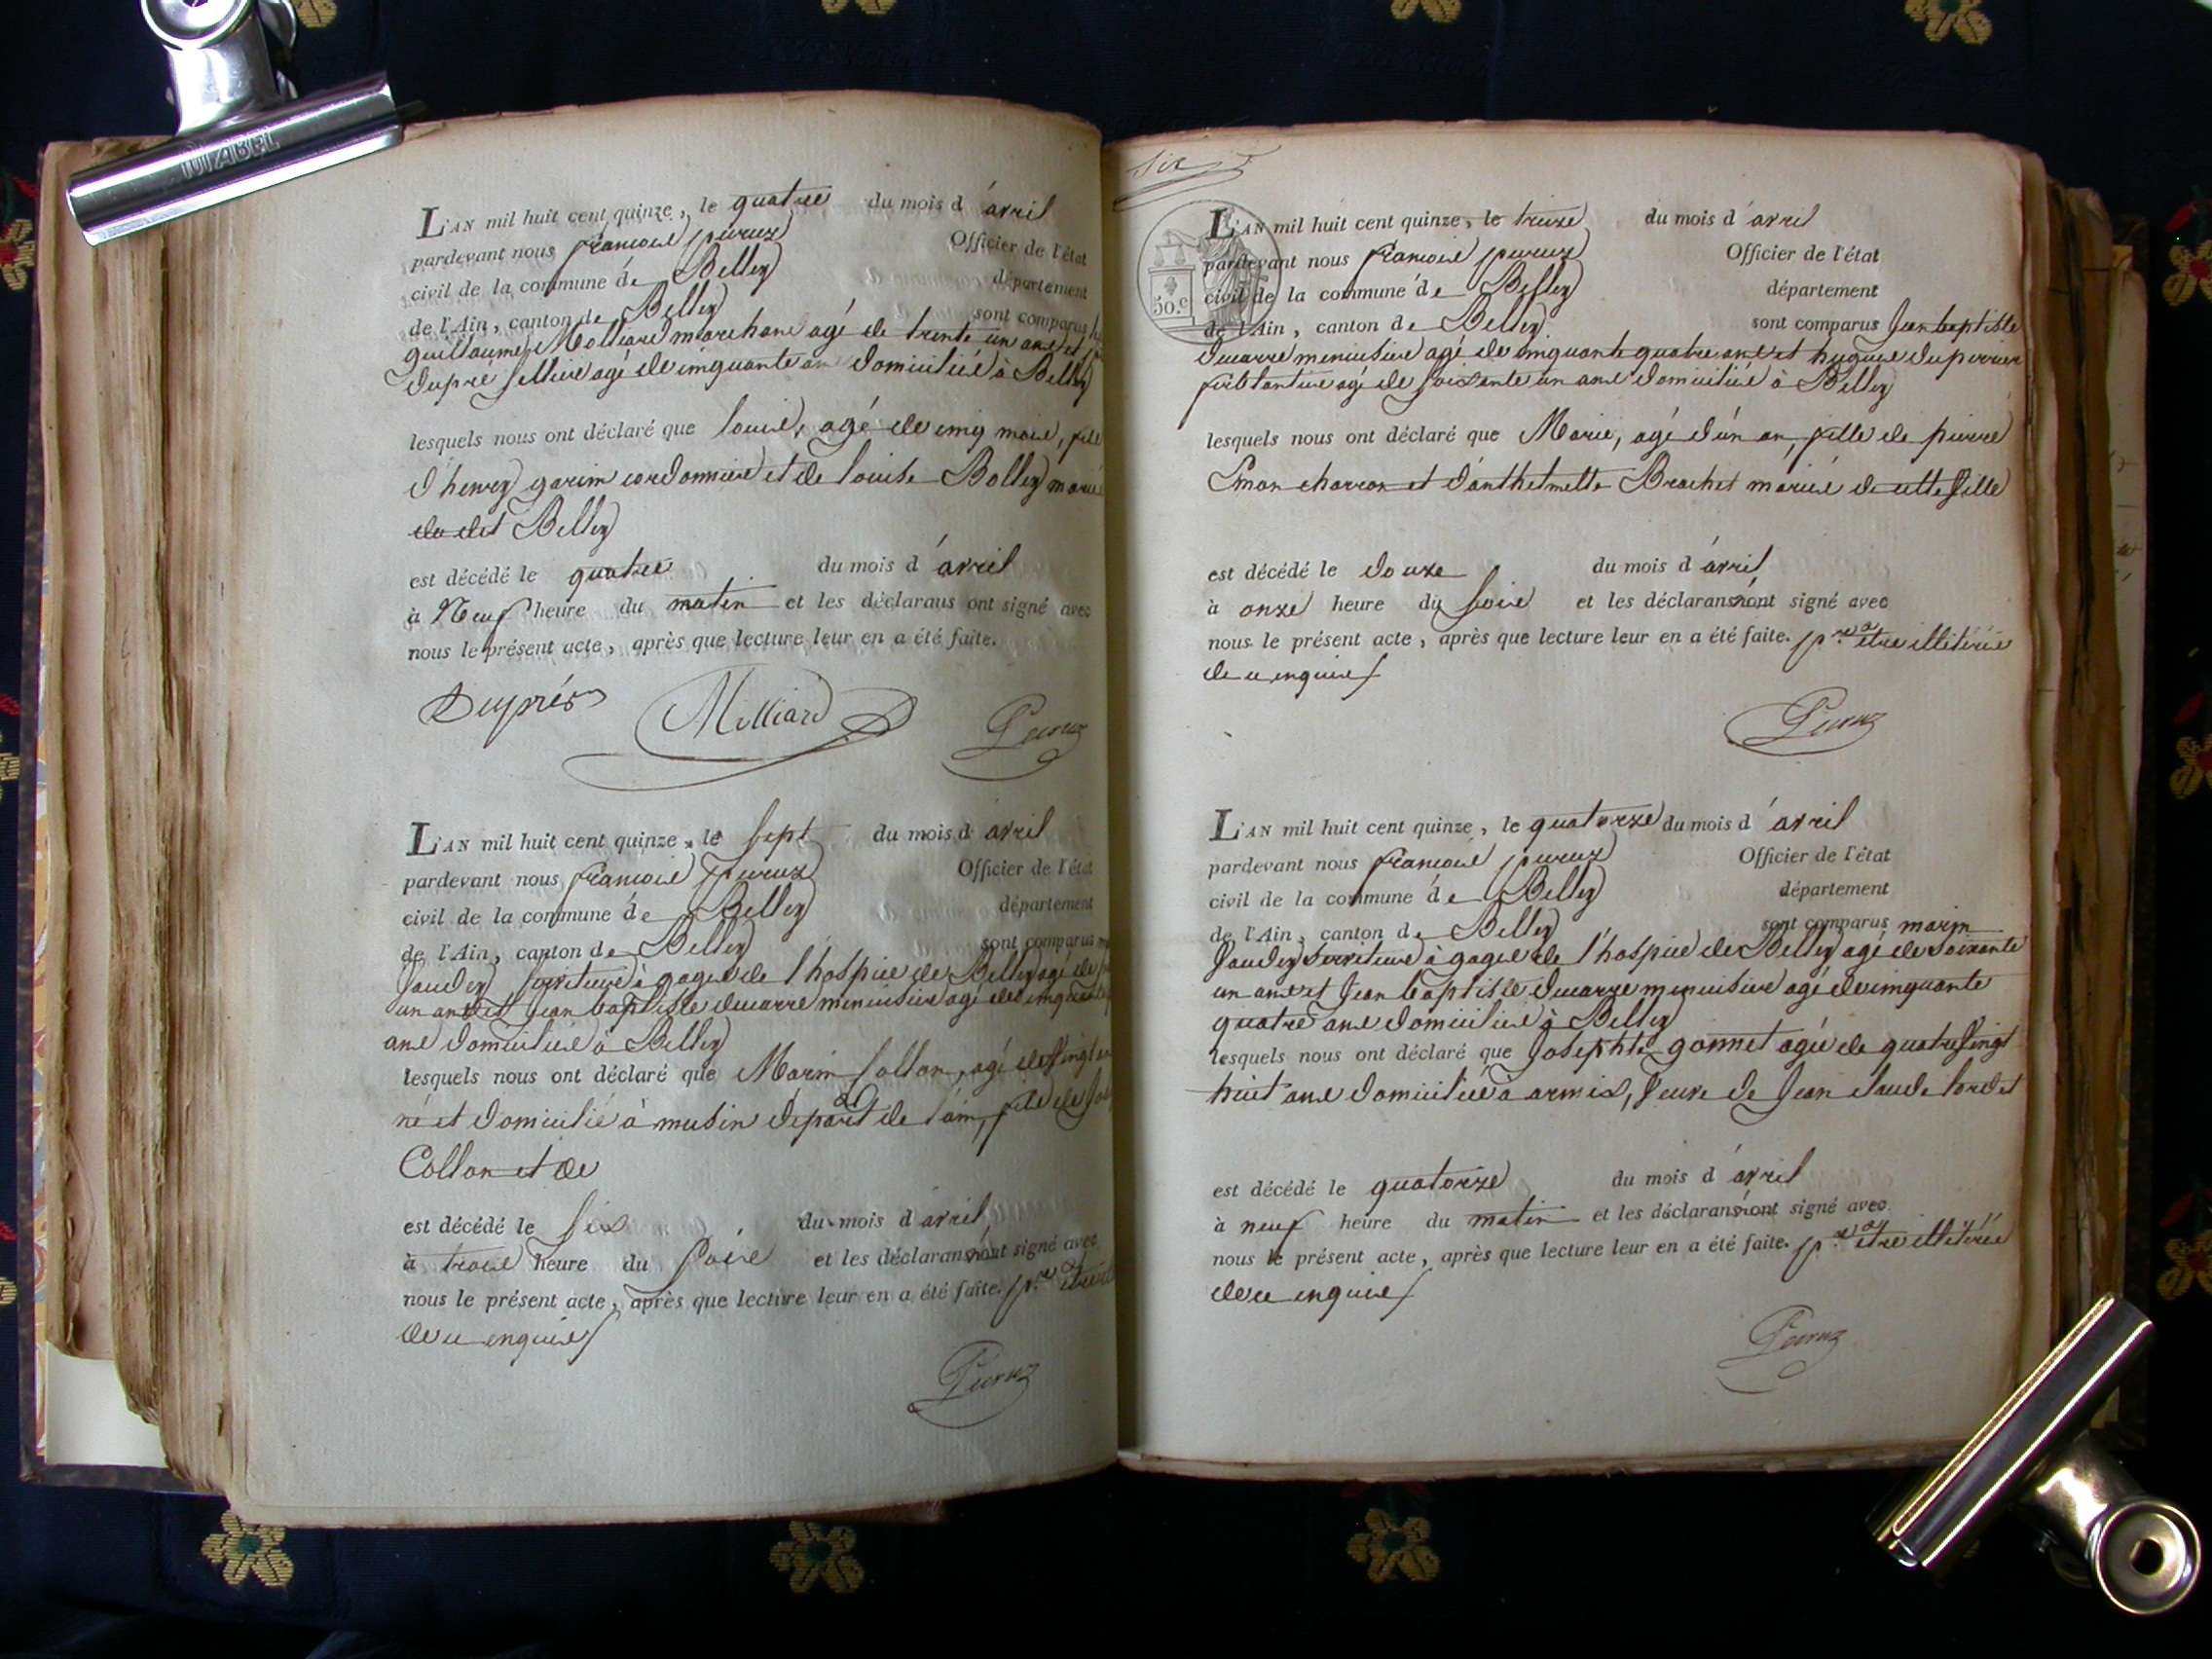 MABEL
L'AN mil huit cent quinze, le quatre du mois d'avril
pardevant nous françois peruz Officier de l'état
civil de la commune de Belley département
de l'Ain, canton de Belley sont comparus
guillaume Molliard marchand agé de trente un ans et
dupré sellier agé de cinquante ans domiciliés à Belley
lesquels nous ont déclaré que louis, agé de cinq mois, fils
d'henry garin cordonnier et de louise Bolley mariés
du dit Belley
est décédé le quatre du mois d'avril
à Neuf heure du matin et les déclarans ont signé avec
nous le présent acte, après que lecture leur en a été faite.
Duprés Milliard
L'AN mil huit cent quinze, le sept du mois d'avril
pardevant nous françois peruz Officier de l'état
civil de la commune de Belley département
de l'Ain, canton de Belley sont comparus
serviteur à gages de l'hospice de Belley agé de
un ans et Jean baptiste ducarre menuisier agé de cinquante
ans domiciliés à Belley
lesquels nous ont déclaré que Marin Collon, agé de vingt
né et domicilié à musin depart.t de l'ain, fils de
Collon et de
est décédé le six du mois d'avril
à trois heure du soir et les déclarans n'ont signé avec
nous le présent acte, après que lecture leur en a été faite. p.r
de ce enquis
six
50.c
L'AN mil huit cent quinze, le treize du mois d'avril
pardevant nous françois peruz Officier de l'état
civil de la commune de Belley département
de l'Ain, canton de Belley sont comparus Jean baptiste
ducarre menuisier agé de cinquante quatre ans et hugues duperrier
agé de soixante un ans domiciliés à Belley
lesquels nous ont déclaré que Marie, agé d'un an, fille de pierre
charron et d'anthelmette Brachet mariés de cette ville
est décédé le douze du mois d'avril
à onze heure du soir et les déclarans n'ont signé avec
nous le présent acte, après que lecture leur en a été faite. p.r être illitérés
de ce enquis
L'AN mil huit cent quinze, le quatorze du mois d'avril
pardevant nous françois peruz Officier de l'état
civil de la commune de Belley département
de l'Ain, canton de Belley sont comparus marin
serviteur à gages de l'hospice de Belley agé de soixante
un ans et Jean baptiste ducarre menuisier agé de cinquante
quatre ans domiciliés à Belley
lesquels nous ont déclaré que Josephte gonnet agée de quatre vingt
huit ans domiciliée à armix, veuve de Jean claude
est décédé le quatorze du mois d'avril
à neuf heure du matin et les déclarans n'ont signé avec
nous le présent acte, après que lecture leur en a été faite. p.r être illitérés
de ce enquis